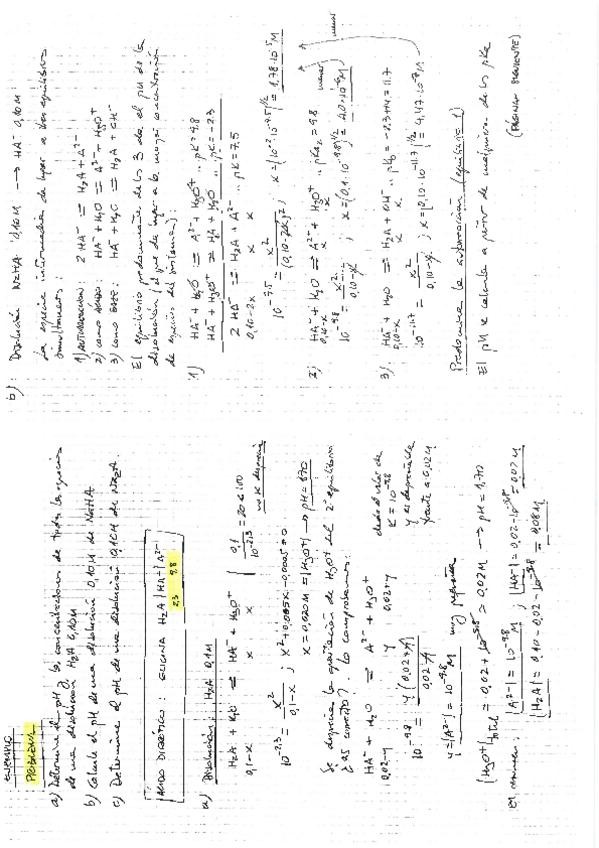 EJEMPLO
PROBLEMA
a) Determine el pH y la concentraciones de todas las especies
de una disolución H₂A 0,10M
b) Calcule el pH de una disolución 0,10M de NaHA
c) Determine el pH de una disolución 0,10M de Na₂A.
ACIDO DIPRÓTICO: GLICINA H₂A | HA⁻ | A²⁻
2,3 9.8
a) Disolución: H₂A 0,1M
H₂A + H₂O ⇌ HA⁻ + H₃O⁺
0,1-x x x
0,1 / 10^-2,3 = 20 < 100
no se desprecia
10^-2,3 = x² / 0,1-x ; x² + 0,005x - 0,0005 = 0
x = 0,020M = |H₃O⁺| → pH = 1,70
Se desprecia la aportación de H₃O⁺ del 2º equilibrio
¿es correcto?. Lo comprobamos:
HA⁻ + H₂O ⇌ A²⁻ + H₃O⁺
0,02-y y 0,02+y
dado el valor de
K = 10^-9.8
y es despreciable
frente a 0,02M
10^-9.8 = y(0,02+y) / 0,02-y
y = |A²⁻| = 10^-9.8 M muy pequeña
|H₃O⁺|total = 0,02 + 10^-9.8 ≃ 0,02M → pH = 1,70
En resumen: |A²⁻| = 10^-9.8 M ; |HA⁻| = 0,02 - 10^-9.8 = 0,02M
|H₂A| = 0,10 - 0,02 - 10^-9.8 = 0,08M
b) Disolución NaHA 0,10M → HA⁻ 0,10M
La especie intermedia da lugar a tres equilibrios
simultáneos:
1) AUTOIONIZACIÓN: 2 HA⁻ ⇌ H₂A + A²⁻
2) como ÁCIDO: HA⁻ + H₂O ⇌ A²⁻ + H₃O⁺
3) como BASE: HA⁻ + H₂O ⇌ H₂A + OH⁻
El equilibrio predominante de los 3 da el pH de la
disolución (el que da lugar a la mayor concentración
de especies del sistema):
1) HA⁻ + H₂O ⇌ A²⁻ + H₃O⁺ .. pK = 9.8
HA⁻ + H₃O⁺ ⇌ H₂A + H₂O .. pK = -2.3
2 HA⁻ ⇌ H₂A + A²⁻ .. pK = 7.5
0,10-2x x x
10^-7.5 = x² / (0,10-2x)² ; x = (10^-2 · 10^-7.5)^1/2 = 1,78·10^-5 M
2) HA⁻ + H₂O ⇌ A²⁻ + H₃O⁺ .. pKa₂ = 9.8
0,10-x x x
10^-9.8 = x² / 0,10-x ; x = (0,1·10^-9.8)^1/2 = 4,0·10^-6 M
3) HA⁻ + H₂O ⇌ H₂A + OH⁻ .. pKb = -2.3+14 = 11.7
0,10-x x x
10^-11.7 = x² / 0,10-x ; x = (0,10·10^-11.7)^1/2 = 4,47·10^-7 M
Predomina la autoionización (equilibrio 1)
El pH se calcula a partir de cualquiera de los pKa
(PÁGINA SIGUIENTE)